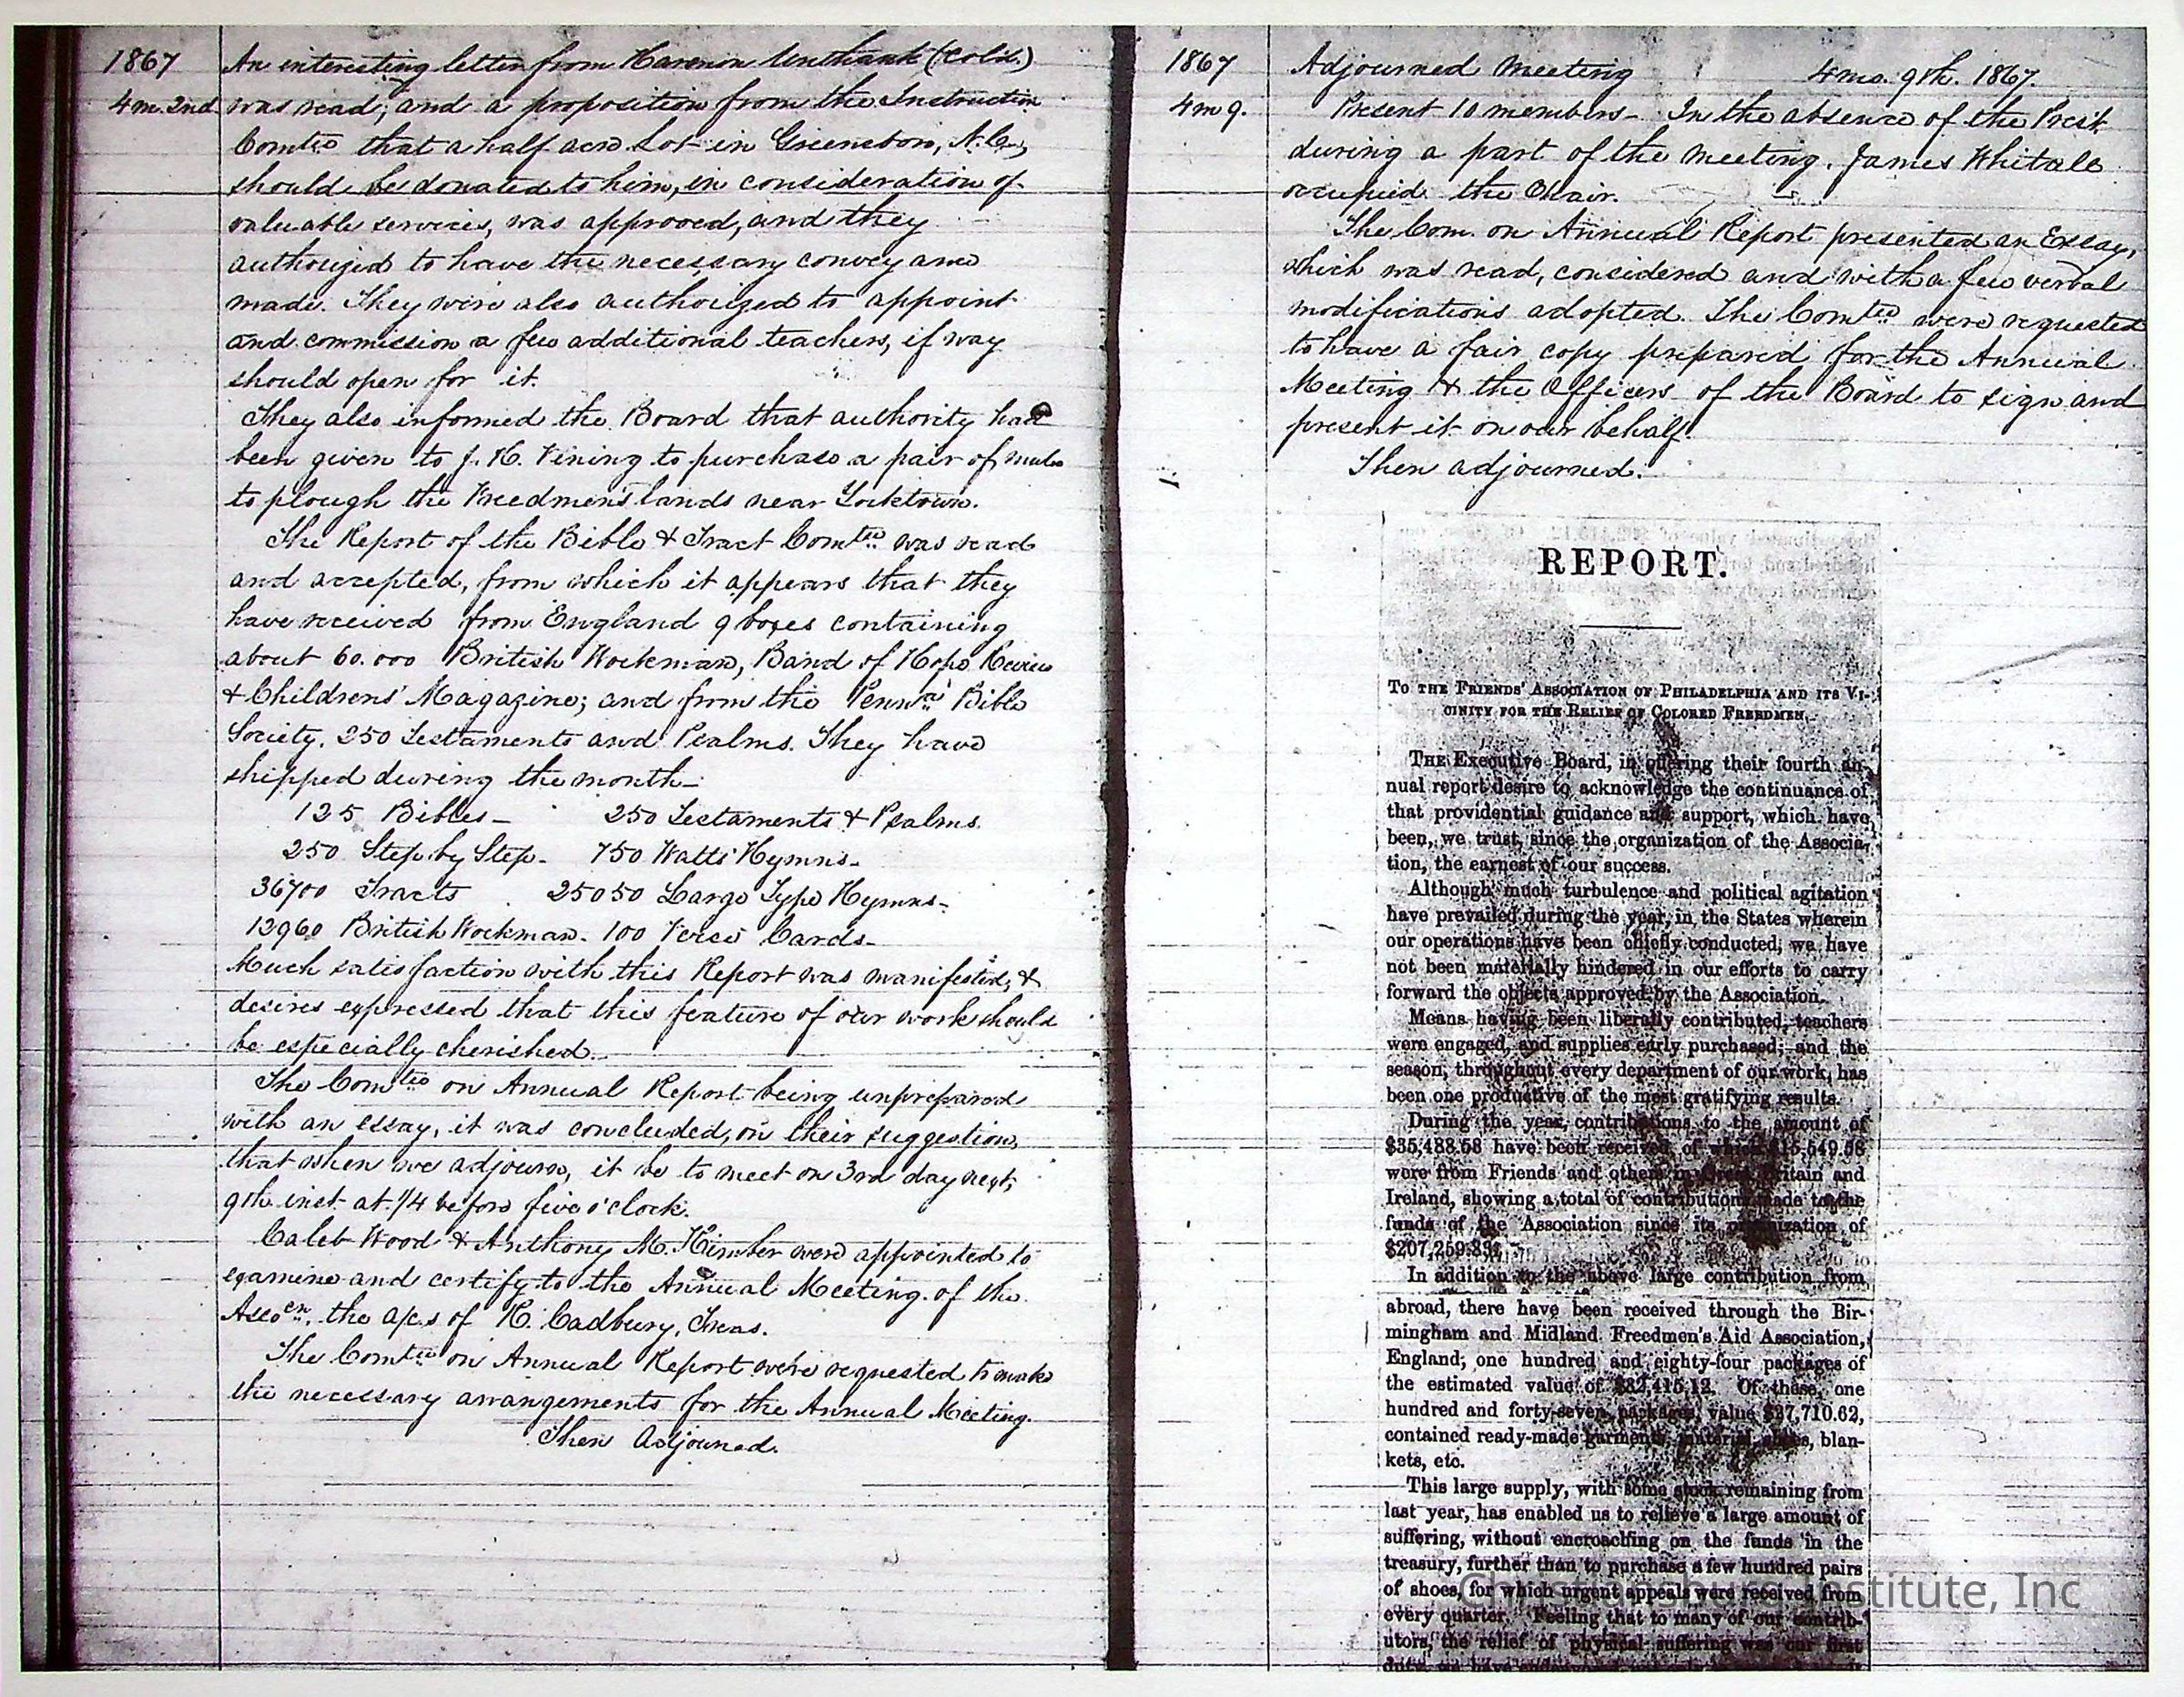 1867
An interesting letter from Harmon Unthank (Cold.)
4m. 2nd. was read; and a proposition from the Instruction
Comtee that a half acre Lot in Greensboro, N.C.,
should be donated to him, in consideration of
valuable services, was approved, and they
authorized to have the necessary conveyance
made. They were also authorized to appoint
and commission a few additional teachers, if way
should open for it.
They also informed the Board that authority had
been given to J. H. Vining to purchase a pair of mules
to plough the Freedmen's lands near Yorktown.
The Report of the Bible & Tract Comtee was read
and accepted, from which it appears that they
have received from England 9 boxes containing
about 60.000 British Workman, Band of Hope Review
& Childrens' Magazine; and from the Penna Bible
Society, 250 Testaments and Psalms. They have
shipped during the month—
125 Bibles— 250 Testaments & Psalms.
250 Step by Step— 750 Watts' Hymns—
36700 Tracts 25050 Large Type Hymns—
13960 British Workman— 100 Verse Cards—
Much satisfaction with this Report was manifested, &
desires expressed that this feature of our work should
be especially cherished.
The Comtee on Annual Report being unprepared
with an essay, it was concluded, on their suggestion,
that when we adjourn, it be to meet on 3rd day next,
9th inst. at 1/4 before five o'clock.
Caleb Wood & Anthony M. Kimber were appointed to
examine and certify to the Annual Meeting of the
Assocn, the a/cs of R. Cadbury, Treas.
The Comtee on Annual Report were requested to make
the necessary arrangements for the Annual Meeting.
Then Adjourned.
1867
Adjourned Meeting 4mo. 9th. 1867.
4m 9. Present 10 members— In the absence of the Prest.
during a part of the meeting, James Whitall
occupied the Chair.
The Com. on Annual Report presented an Essay,
which was read, considered and with a few verbal
modifications adopted. The Comtee were requested
to have a fair copy prepared for the Annual
Meeting & the Officers of the Board to sign and
present it on our behalf.
Then adjourned.
REPORT.
TO THE FRIENDS' ASSOCIATION OF PHILADELPHIA AND ITS VI-
CINITY FOR THE RELIEF OF COLORED FREEDMEN.
THE Executive Board, in offering their fourth an-
nual report desire to acknowledge the continuance of
that providential guidance and support, which have
been, we trust, since the organization of the Associa-
tion, the earnest of our success.
Although much turbulence and political agitation
have prevailed during the year, in the States wherein
our operations have been chiefly conducted, we have
not been materially hindered in our efforts to carry
forward the objects approved by the Association.
Means having been liberally contributed, teachers
were engaged, and supplies early purchased; and the
season, throughout every department of our work, has
been one productive of the most gratifying results.
During the year, contributions to the amount of
$35,488.58 have been received, of which $15,549.58
were from Friends and others in Great Britain and
Ireland, showing a total of contributions made to the
funds of the Association since its organization of
$207,259.83
In addition to the above large contribution from
abroad, there have been received through the Bir-
mingham and Midland Freedmen's Aid Association,
England, one hundred and eighty-four packages of
the estimated value of $32,415.12. Of these, one
hundred and forty-seven packages, value $27,710.62,
contained ready-made garments, material, shoes, blan-
kets, etc.
This large supply, with some stock remaining from
last year, has enabled us to relieve a large amount of
suffering, without encroaching on the funds in the
treasury, further than to purchase a few hundred pairs
of shoes, for which urgent appeals were received from
every quarter. Feeling that to many of our contrib-
utors, the relief of physical suffering was our first
Institute, Inc